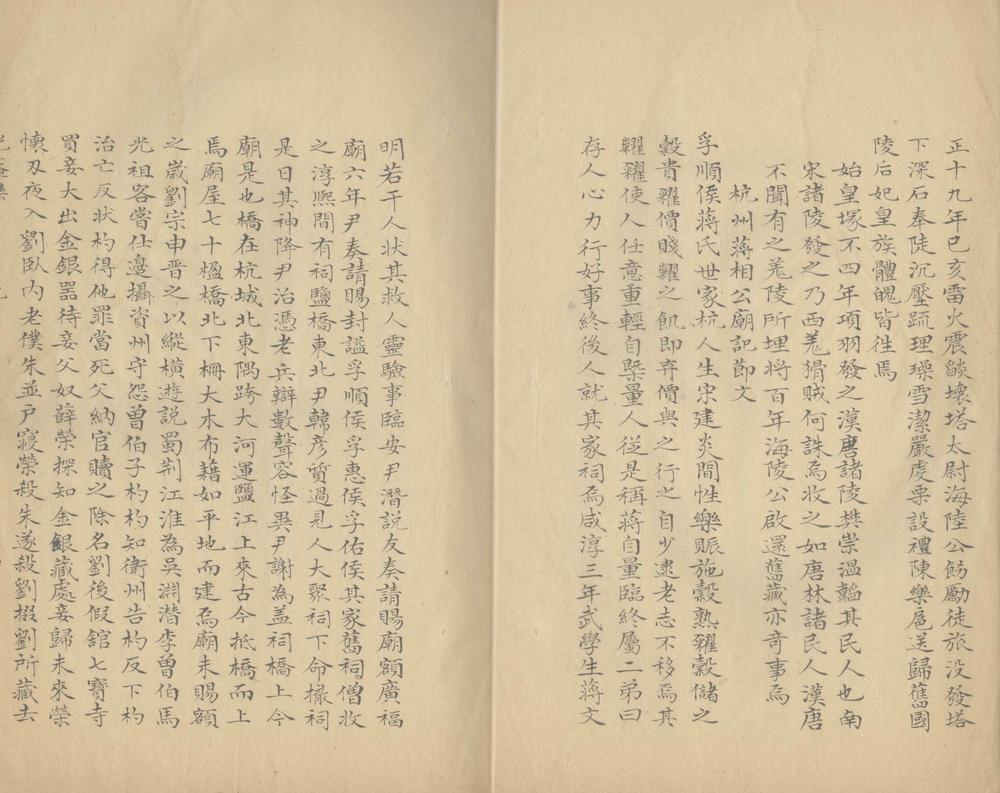 正十九年已亥雷火震燄壞塔太尉海陸公飭勵徒旅没發塔
下深石奉陡沉壓疏理璪雪潔嚴虔栗設禮陳樂扈送歸舊國
陵后妃皇族體魄皆徃焉
始皇塚不四年項羽發之漢唐諸陵樊崇溫韜其民人也南
宋諸陵發之乃西羗猾賊何誅焉收之如唐林諸民人漢唐
不聞有之羗陵所埋將百年海陵公啟還舊藏亦竒事焉
杭州蔣相公廟記節文
孚順侯蔣氏世家杭人生宋建炎間性樂賑施穀熟糴穀儲之
穀貴糶價賤糶之飢即弃價與之行之自少逮老志不移焉其
糶糶使人任意重輕自槩量人從是稱蔣自量臨終屬二弟曰
存人心力行好事終後人就其家祠焉咸淳三年武學生蔣文
明若干人状其救人靈驗事臨安尹潛説友奏請賜廟額廣福
廟六年尹奏請賜封謚孚順侯孚惠侯孚佑侯其家舊祠僧收
之淳熈間有祠鹽橋東北尹韓彦質過見人大聚祠下命撤祠
是日其神降尹治憑老兵辯數聲容怪異尹謝為盖祠橋上今
廟是也橋在杭城北東隅跨大河運鹽江上來古今抵橋而上
焉廟屋七十楹橋北下柵大木布藉如平地而建焉廟未賜額
之歲劉宗申晋之以縱橫逰説蜀荆江淮為吳淵潛李曽伯馬
光祖客嘗仕邊攝資州守怨曽伯子杓杓知衛州告杓反下杓
治亡反状杓得他罪當死父納官贖之除名劉後假舘七寶寺
買妾大出金銀噐待妾父奴薛榮探知金銀藏處妾歸未來榮
懷刃夜入劉卧内老僕朱並户寢榮殺朱遂殺劉掇劉所藏去